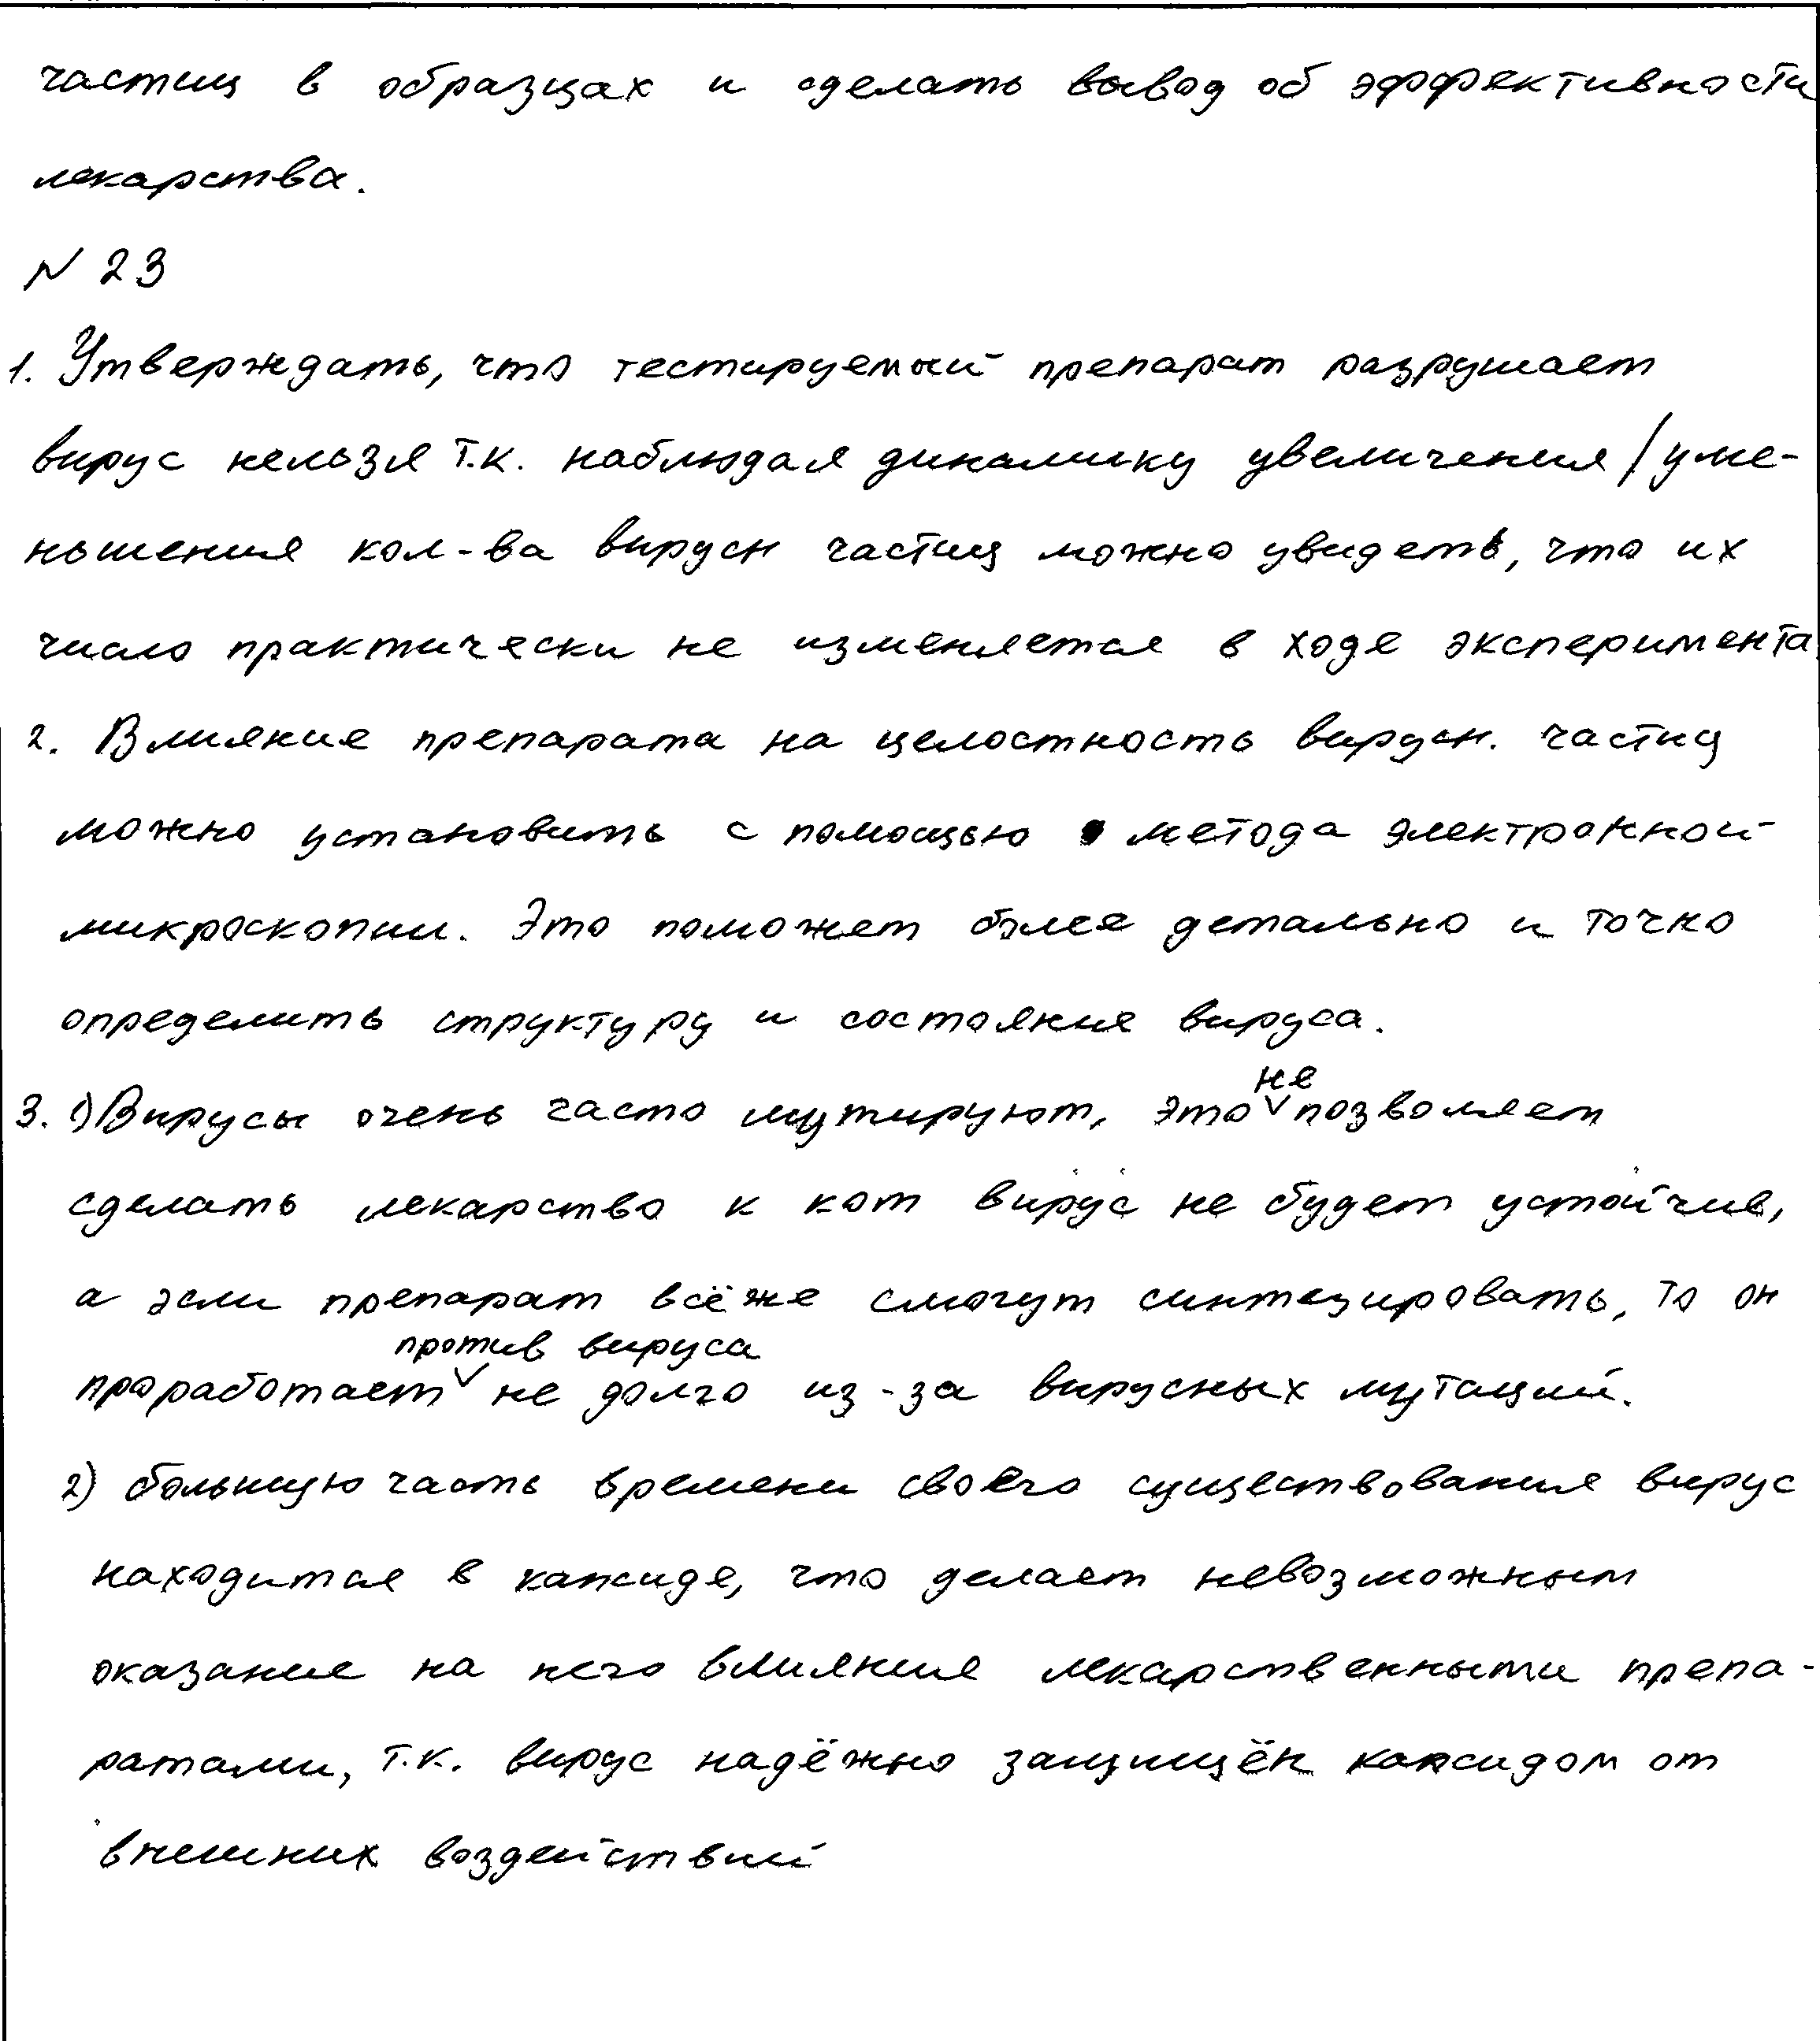 частиц в образцах и сделать вывод об эффективности
лекарства.
N 23
1. Утверждать, что тестируемый препарат разрушает
вирус нельзя т.к. наблюдая динамику увеличения/уме-
ньшения кол-ва вирусн частиц можно увидеть, что их
число практически не изменяется в ходе эксперимента
2. Влияние препарата на целостность вирусн. частиц
можно установить с помощью метода электронной
микроскопии. Это поможет более детально и точно
определить структуру и состояние вируса.
3. 1) Вирусы очень часто мутируют, это не позволяет
сделать лекарство к кот вирус не будет устойчив,
а если препарат всё же смогут синтезировать, то он
проработает против вируса не долго из-за вирусных мутаций.
2) большую часть времени своего существования вирус
находится в капсиде, что делает невозможным
оказание на него влияние лекарственными препа-
ратами, т.к. вирус надёжно защищён капсидом от
внешних воздействий